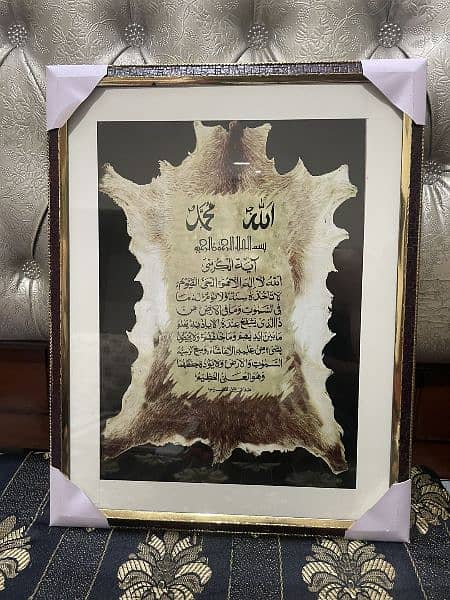 الله محمد
بسم الله الرحمن الرحيم
آية الكرسي
الله لا إله إلا هو الحي القيوم
لا تأخذه سنة ولا نوم له ما
في السموت وما في الارض من
ذا الذي يشفع عنده إلا بإذنه يعلم
ما بين أيديهم وما خلفهم ولا
بشيء من علمه إلا بما شاء وسع كرسيه
السموت والارض ولا يؤده حفظهما
وهو العلي العظيم